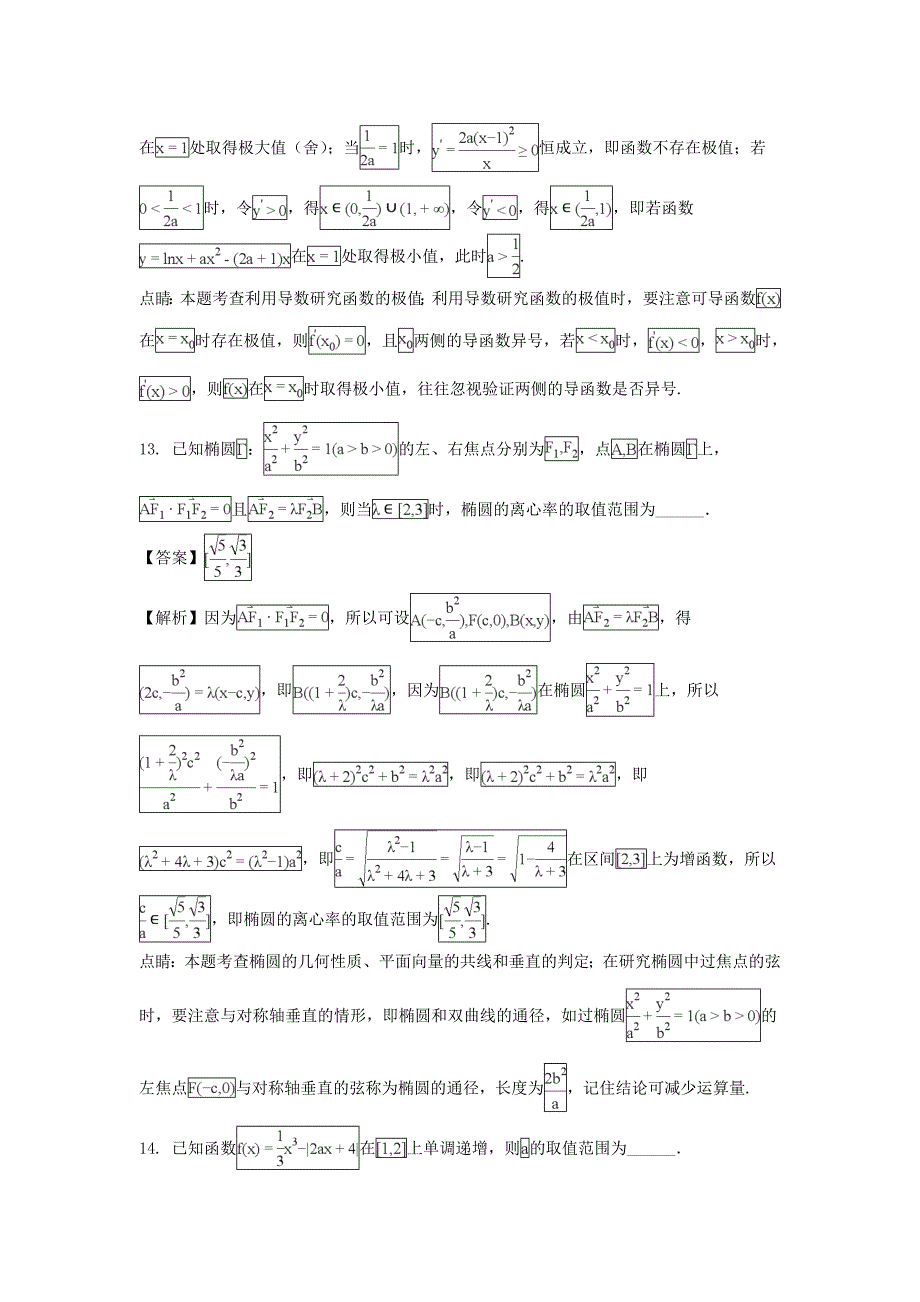 在x = 1处取得极大值（舍）；当\frac{1}{2a} = 1时，y' = \frac{2a(x−1)^2}{x} ≥ 0恒成立，即函数不存在极值；若
0 < \frac{1}{2a} < 1时，令y' > 0，得x ∈ (0,\frac{1}{2a}) ∪ (1, + ∞)，令y' < 0，得x ∈ (\frac{1}{2a},1)，即若函数
y = lnx + ax^2 - (2a + 1)x在x = 1处取得极小值，此时a > \frac{1}{2}.
点睛：本题考查利用导数研究函数的极值；利用导数研究函数的极值时，要注意可导函数f(x)
在x = x_0时存在极值，则f'(x_0) = 0，且x_0两侧的导函数异号，若x < x_0时，f'(x) < 0，x > x_0时，
f'(x) > 0，则f(x)在x = x_0时取得极小值，往往忽视验证两侧的导函数是否异号.
13. 已知椭圆Γ：\frac{x^2}{a^2} + \frac{y^2}{b^2} = 1(a > b > 0)的左、右焦点分别为F_1,F_2，点A,B在椭圆Γ上，
\vec{AF_1} · \vec{F_1F_2} = 0且\vec{AF_2} = λ\vec{F_2B}，则当λ ∈ [2,3]时，椭圆的离心率的取值范围为______．
【答案】[\frac{\sqrt{5}}{5},\frac{\sqrt{3}}{3}]
【解析】因为\vec{AF_1} · \vec{F_1F_2} = 0，所以可设A(−c,\frac{b^2}{a}),F(c,0),B(x,y)，由\vec{AF_2} = λ\vec{F_2B}，得
(2c,−\frac{b^2}{a}) = λ(x−c,y)，即B((1 + \frac{2}{λ})c,−\frac{b^2}{λa})，因为B((1 + \frac{2}{λ})c,−\frac{b^2}{λa})在椭圆\frac{x^2}{a^2} + \frac{y^2}{b^2} = 1上，所以
\frac{(1 + \frac{2}{λ})^2c^2}{a^2} + \frac{(−\frac{b^2}{λa})^2}{b^2} = 1，即(λ + 2)^2c^2 + b^2 = λ^2a^2，即(λ + 2)^2c^2 + b^2 = λ^2a^2，即
(λ^2 + 4λ + 3)c^2 = (λ^2−1)a^2，即\frac{c}{a} = \sqrt{\frac{λ^2−1}{λ^2 + 4λ + 3}} = \sqrt{\frac{λ−1}{λ + 3}} = \sqrt{1−\frac{4}{λ + 3}}在区间[2,3]上为增函数，所以
\frac{c}{a} ∈ [\frac{\sqrt{5}}{5},\frac{\sqrt{3}}{3}]，即椭圆的离心率的取值范围为[\frac{\sqrt{5}}{5},\frac{\sqrt{3}}{3}].
点睛：本题考查椭圆的几何性质、平面向量的共线和垂直的判定；在研究椭圆中过焦点的弦
时，要注意与对称轴垂直的情形，即椭圆和双曲线的通径，如过椭圆\frac{x^2}{a^2} + \frac{y^2}{b^2} = 1(a > b > 0)的
左焦点F(−c,0)与对称轴垂直的弦称为椭圆的通径，长度为\frac{2b^2}{a}，记住结论可减少运算量.
14. 已知函数f(x) = \frac{1}{3}x^3−|2ax + 4|在[1,2]上单调递增，则a的取值范围为______．